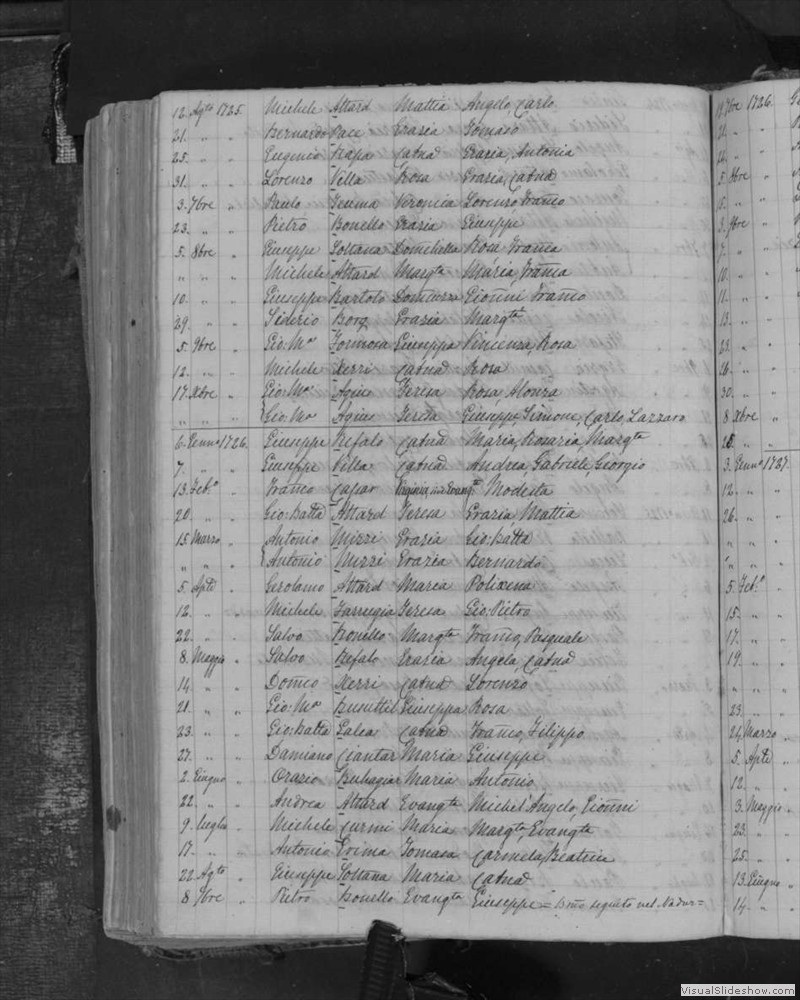 12. Agto 1725. Michele Attard Mattia Angelo, Carlo
21. " " Bernardo Pace Grazia Tomaso
25. " " Eugenio Rapa Catna Grazia, Antonia
31. " " Lorenzo Villa Rosa Grazia, Catna
3. 7bre " Paulo Teuma Veronica Lorenzo Franco
23. " " Pietro Bonello Grazia Giuseppe
5. 8bre " Giuseppe Soltana Domchella Rosa Franca
" " " Michele Attard Margta Maria, Franca
10. " " Giuseppe Bartolo Giovni Franco
29. " " Siderio Borg Grazia Margta
5. 9bre " Gio: Ma Formosa Giuseppa Vincenza, Rosa
12. " " Michele Xerri Catna Rosa
17. Xbre " Gio: Ma Agius Teresa Rosa, Alonza
" " " Gio: Ma Agius Teresa Giuseppe, Simone, Carlo, Lazzaro
6. Genno 1726. Giuseppe Refalo Catna Maria, Rosaria, Margta
7. " " Giuseppe Villa Catna Andrea, Gabriele, Georgio
13. Febo " Franco Caſar Virginia, Evangta Modesta
20. " " Gio: Batta Attard Teresa Grazia, Mattia
15. Marzo " Antonio Mizzi Grazia Gio: Batta
" " " Antonio Mizzi Grazia Bernardo
5. Aple " Gerolamo Attard Marea Polixena
12. " " Michele Farrugia Teresa Gio: Pietro
22. " " Salvo Bonello Margta Franco, Pasquale
8. Maggio " Salvo Refalo Grazia Angela, Catna
14. " " Domco Xerri Catna Lorenzo
21. " " Gio: Ma Busuttil Giuseppa Rosa
23. " " Gio: Batta Galea Catna Franco, Filippo
27. " " Damiano Ciantar Maria Giuseppe
2. Giugno " Orazio Buhagiar Maria Antonio
22. " " Andrea Attard Evangta Michel'Angelo, Giovni
9. Luglio " Michele Curmi Maria Margta Evangta
17. " " Antonio Grima Tomasa Carmela, Beatrice
22. Agto " Giuseppe Soltana Maria Catna
8 7bre " Pietro Bonello Evangta Giuseppe = seguito nel Nadur =
19. 7bre 1726.
21. " "
" "
5. 8bre "
15. " "
3. 9bre "
7. " "
10. " "
11. " "
13. " "
23. " "
26. " "
30. " "
8 Xbre "
25. " "
3. Genno 1727.
12. " "
26. " "
" " "
" " "
5. Febo "
15. " "
17. " "
19. " "
" " "
23. " "
24. Marzo "
5. Aple "
12. " "
3. Maggio "
23. " "
25. " "
13. Giugno "
14. " "
VisualSlideshow.com